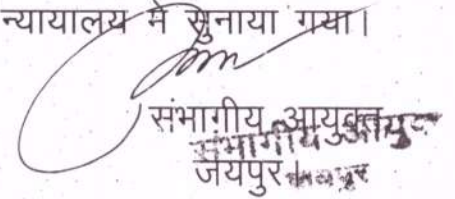 न्यायालय मे सुनाया गया।
संभागीय आयुक्त
संभागीय आयुक्त
जयपुर।
जयपुर